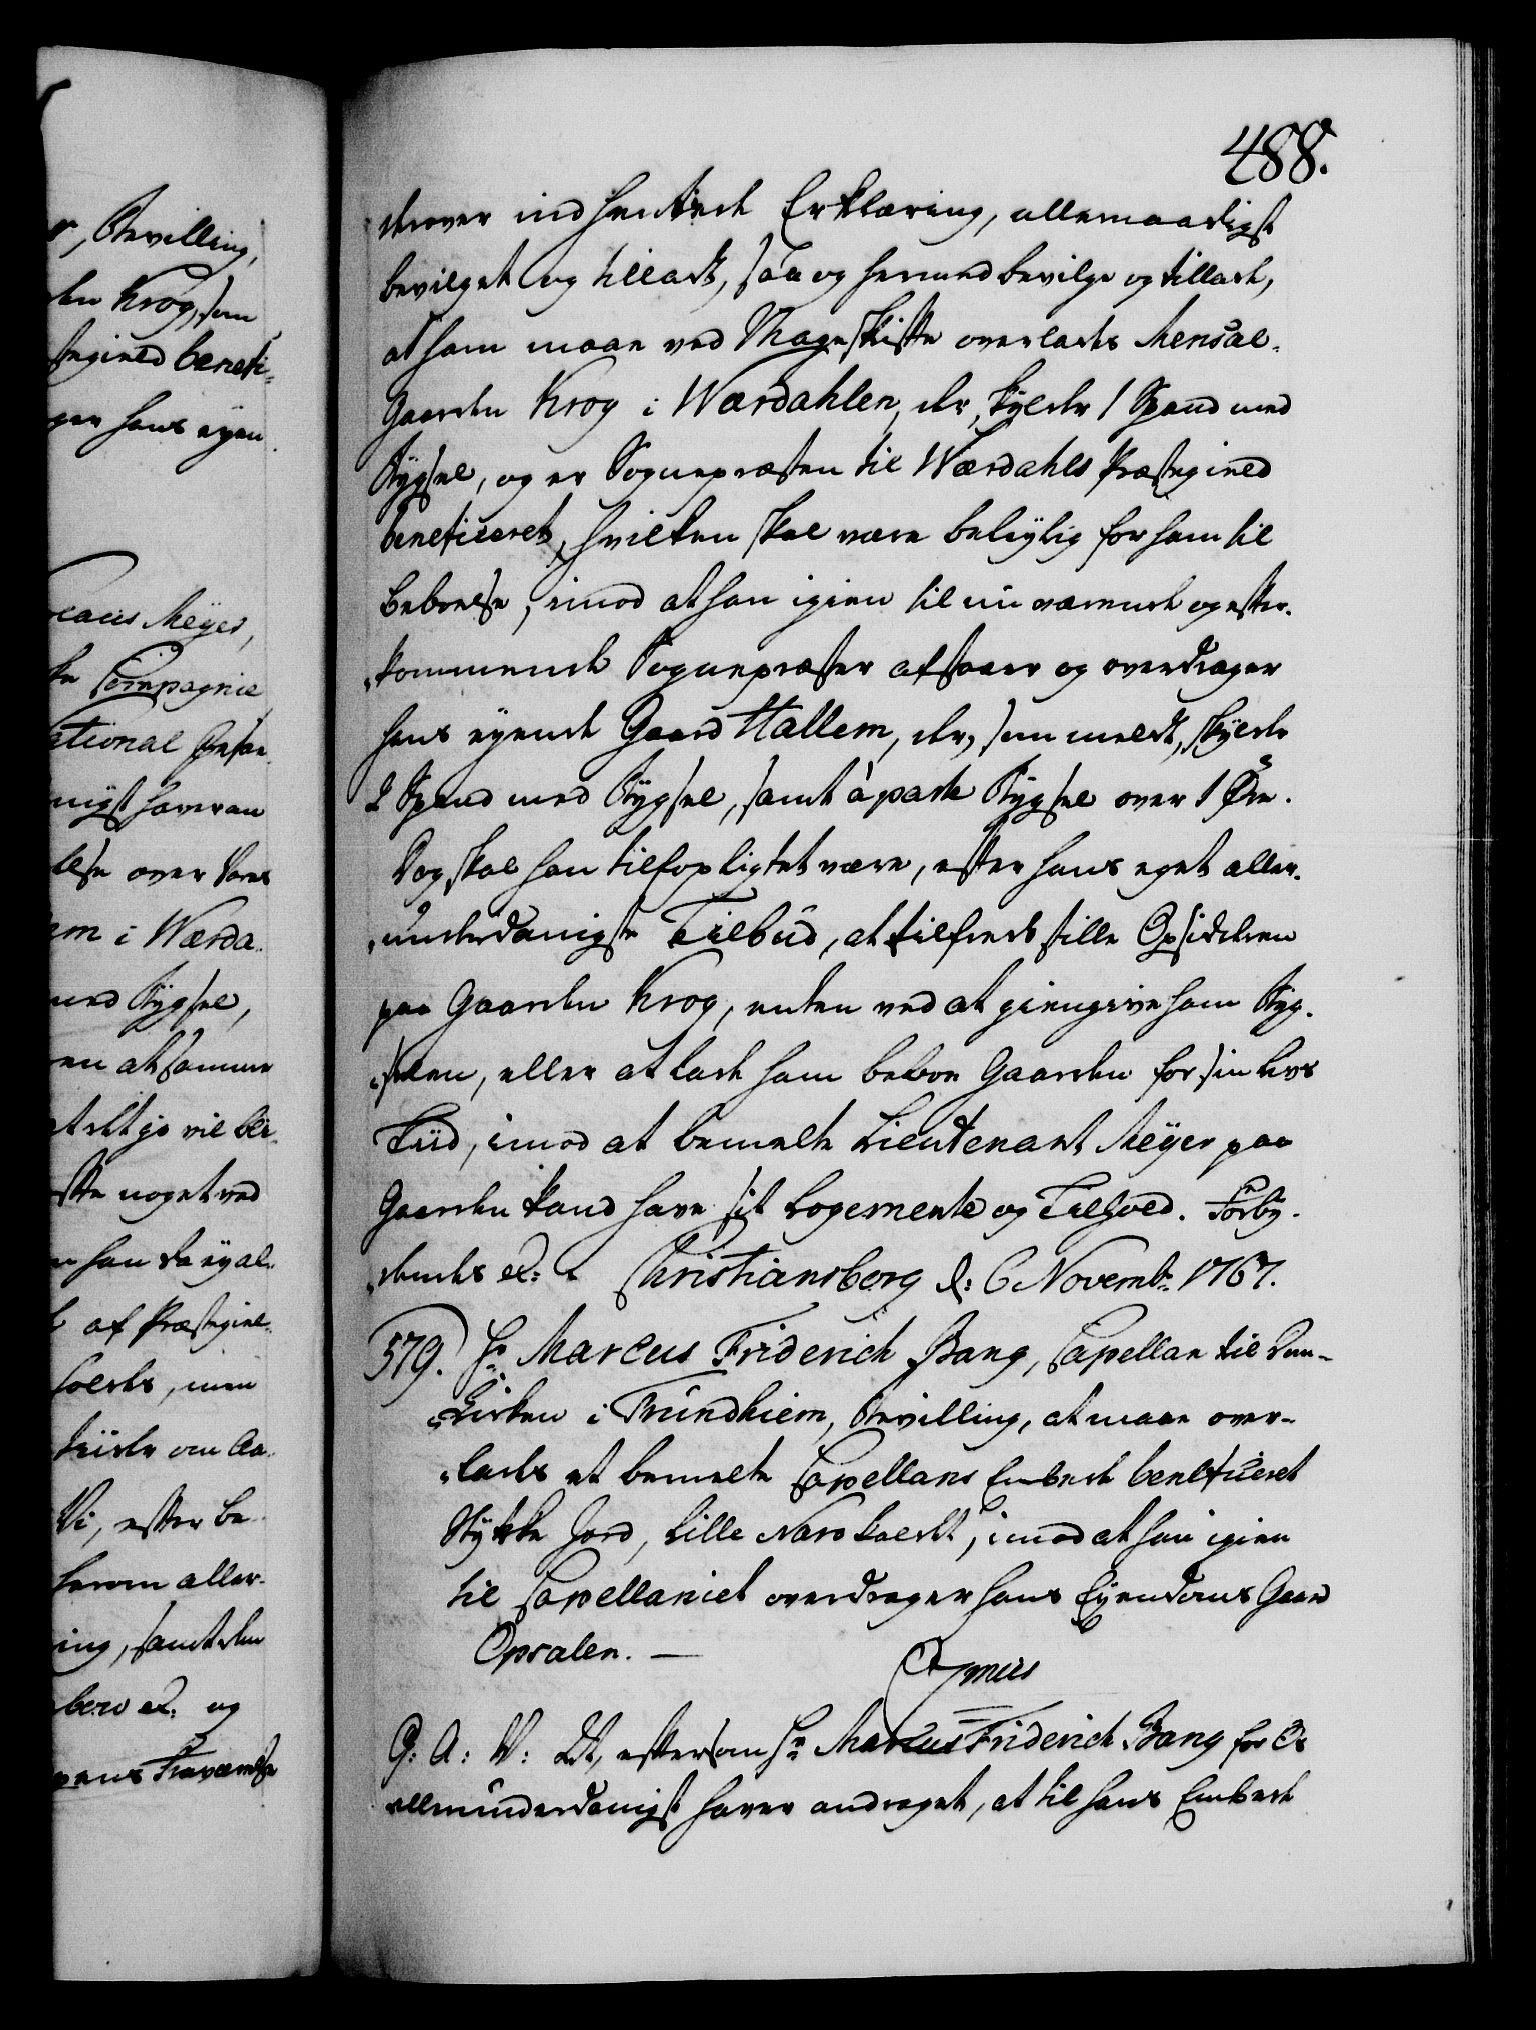 488.
derover indhentede Erklæring, allernaadigst
bevilget og tilladt, saa og hermed bevilge og tillade,
at ham maae ved Mageskifte overlades Mensal-
Gaarden Krog i Wærdahlen, der skylder 1 Spand med
Bygsel, og er Sognepræsten til Wærdahls Præstegield
beneficeret, hvilken skal være beleylig for ham til
Beboelse, imod at han igien til nu værende og efter-
kommende Sognepræster afstaaer og overdrager
hans eyende Gaard Hallem, der, som meldt, skylder
2 Spand med Bygsel, samt à parte Bygsel over 1 Øre.
Dog skal han tilforpligtet være, efter hans eget aller-
underdanigste Tilbud, at tilfredsstille Opsidderen
paa Gaarden Krog, enten ved at giengive ham Byg-
selen, eller at lade ham beboe Gaarden for sin Livs
Tiid, imod at bemelte Lieutenant Meyer paa
Gaarden kand have sit Logemente og Tilhold. Forby-
dendes etc: Christiansborg d: 6 Novembr: 1767.
579. Hr: Marcus Friderich Bang, Capellan til Dom-
Kirken i Trundhiem, Bevilling, at maae over-
lades et bemelte Capellans Embede beneficeret
Stykke Jord, Lille Nardskaelet, imod at han igien
til Capellaniet overdrager hans Eyendoms Gaard
Opsalen. —
C 7mus
G: A: W: At, eftersom Hr: Marcus Friderich Bang for Os
allerunderdanigst haver andraget, at til hans Embede
r, Bevilling,
den Krog, som
stegield benefi-
ger hans egen
colaus Meyer,
ke Compagnie
ational
nigst haver an
lse over Vores
em i Wærda-
med Bygsel,
en at samme
et
ste noget ved
han
af Præstegiel-
holdes, men
om Aa-
Vi, efter be-
herom aller-
ing, samt den
bero etc: og
pens Fraværelse